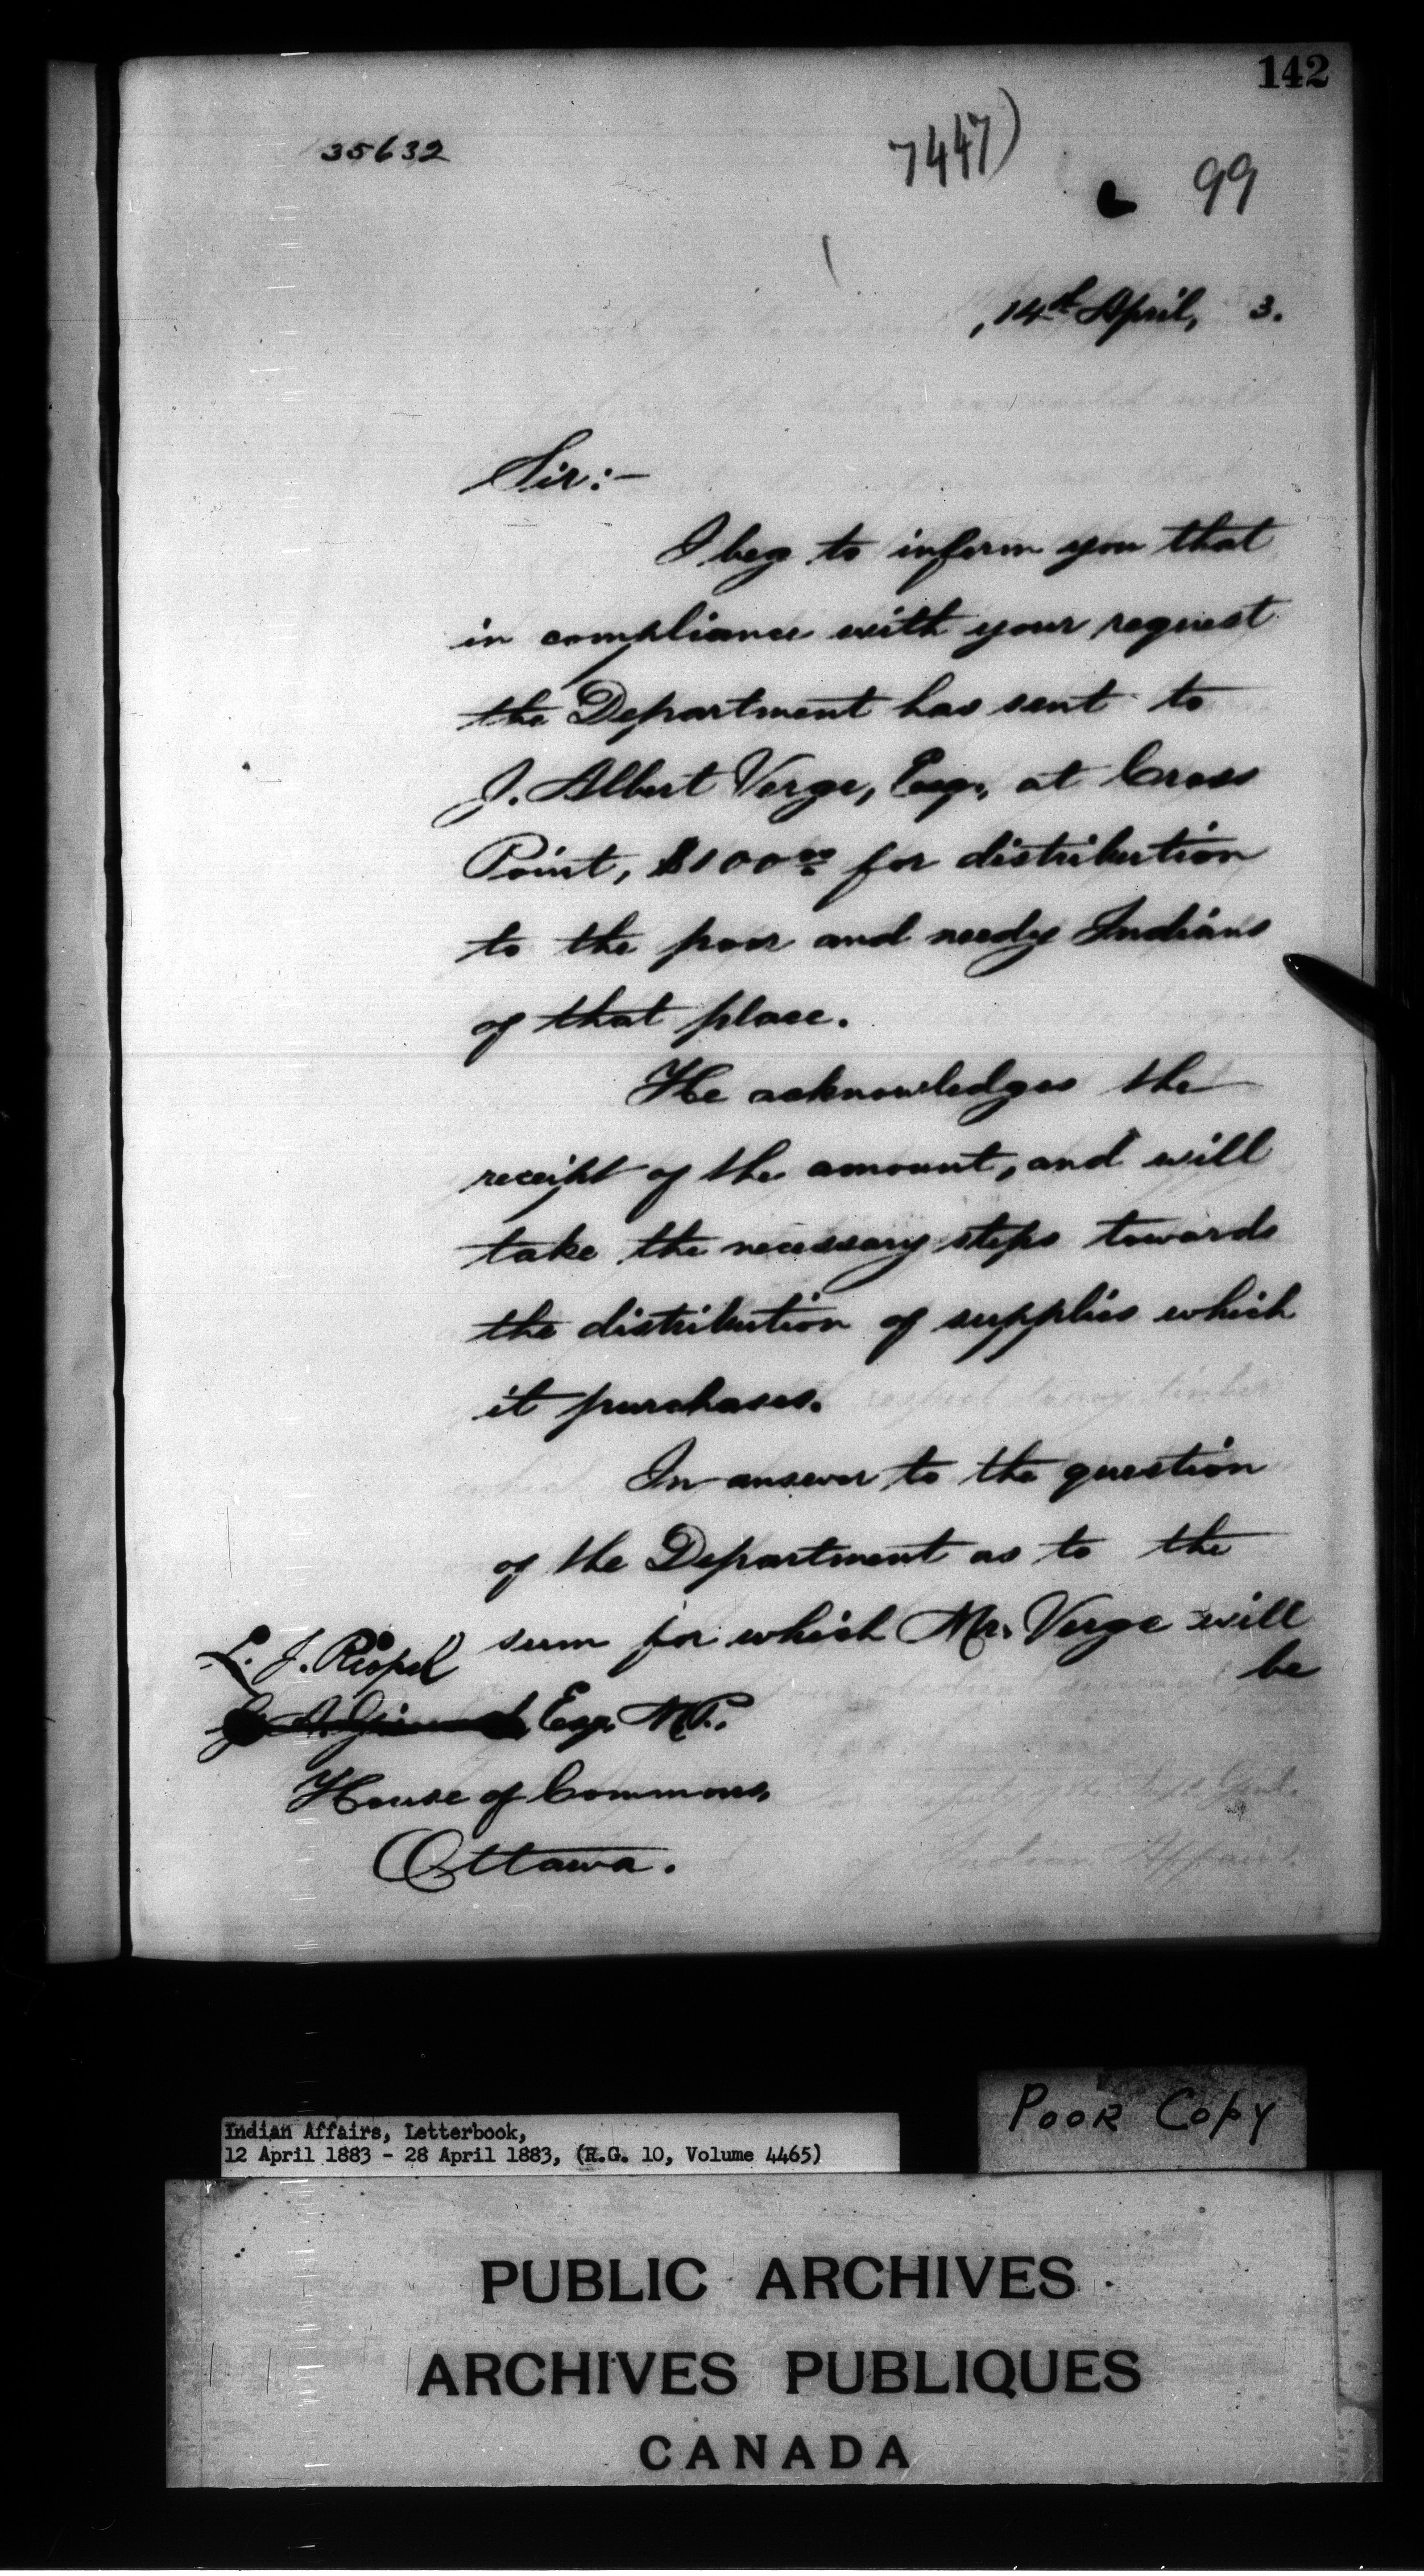 142
35632
7447)
99
14th April, 3.
Sir:-
I beg to inform you that
in compliance with your request
the Department has sent to
J. Albert Verge, Esq., at Cross
Point, $100.00 for distribution
to the poor and needy Indians
of that place.
He acknowledges the
receipt of the amount, and will
take the necessary steps towards
the distribution of supplies which
it purchases.
In answer to the question
of the Department as to the
sum for which Mr. Verge will
be
L. J. Riopel
Esq. M.P.
House of Commons,
Ottawa.
Poor Copy
Indian Affairs, Letterbook,
12 April 1883 - 28 April 1883, (R.G. 10, Volume 4465)
PUBLIC ARCHIVES
ARCHIVES PUBLIQUES
CANADA